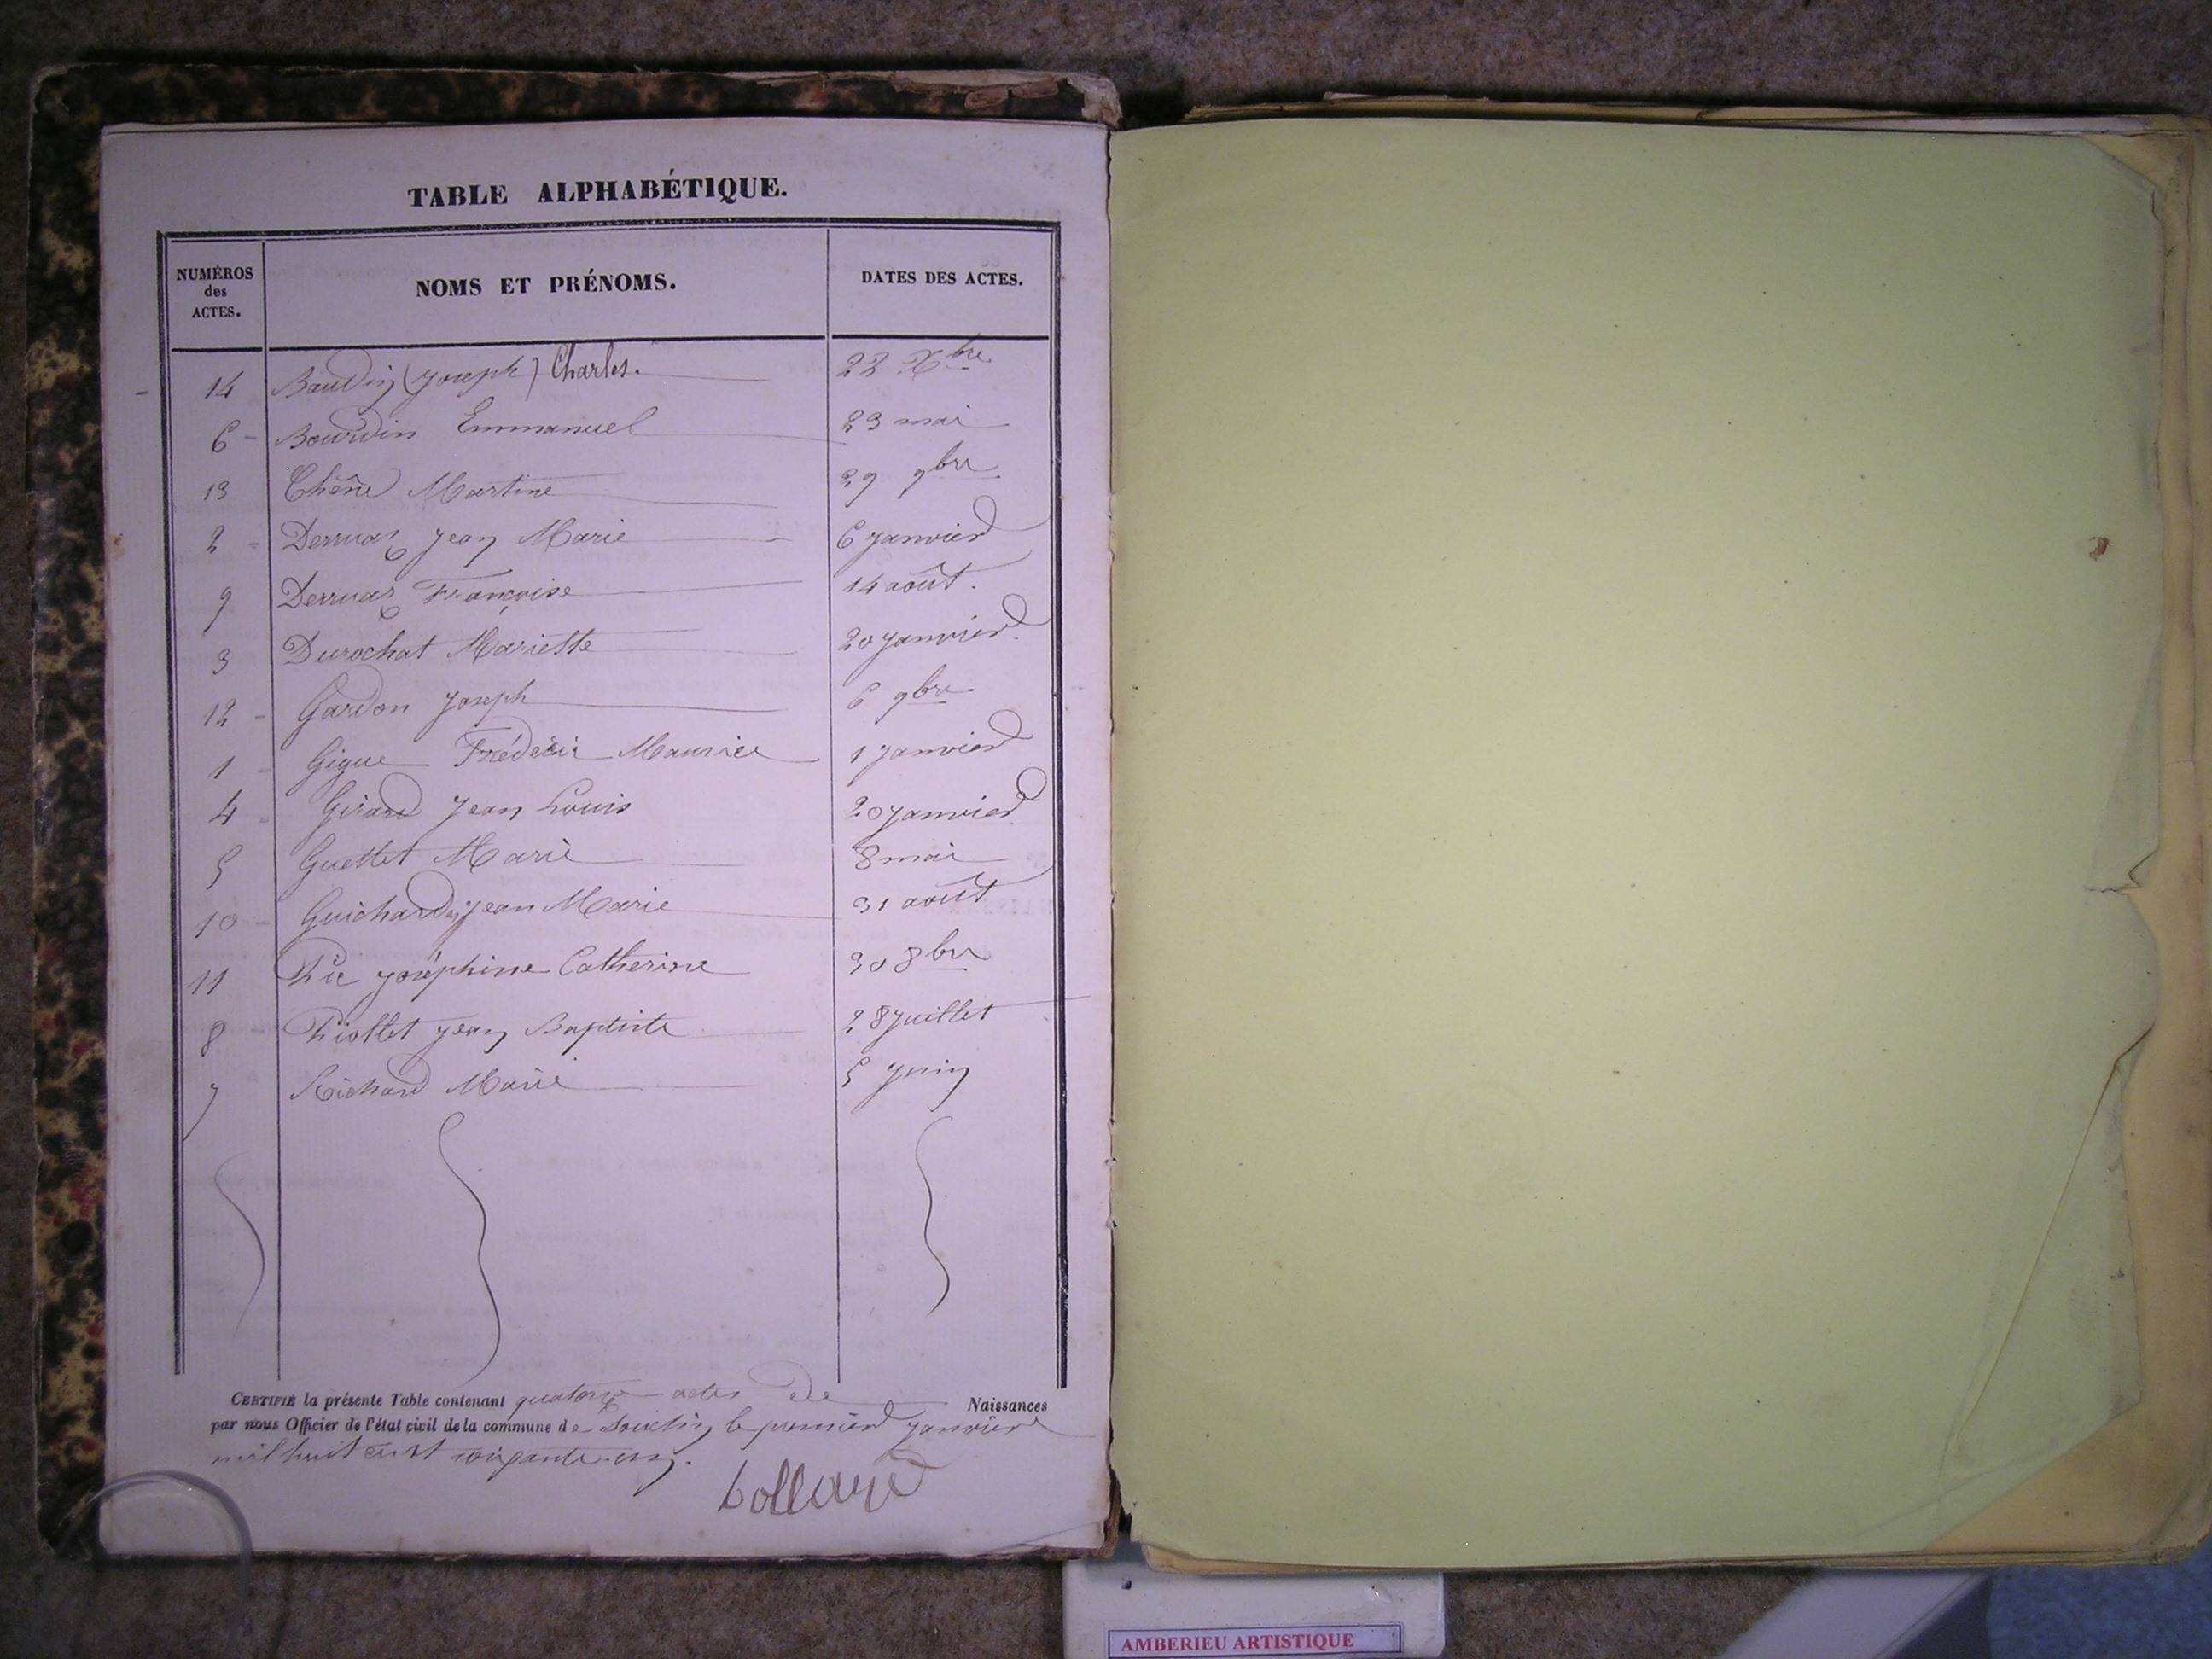 TABLE ALPHABÉTIQUE.
NUMÉROS des ACTES. NOMS ET PRÉNOMS. DATES DES ACTES.
14 Baudin (Joseph) Charles. 22 Xbre
6 Bourdin Emmanuel 23 mai
13 Chêne Martine 29 9bre
2 Derruaz Jean Marie 6 Janvier
9 Derruaz Françoise 14 août.
3 Durochat Mariette 20 Janvier
12 Gardon Joseph 6 9bre
1 Gigue Frédéric Maurice 1 Janvier
4 Girard Jean Louis 20 Janvier
5 Guettet Marie 8 mai
10 Guichard Jean Marie 31 août
11 Pic Joséphine Catherine 30 8bre
8 Piollet Jean Baptiste 28 Juillet
7 Richard Marie 5 Juin
CERTIFIÉ la présente Table contenant quatorze actes de Naissances
par nous Officier de l'état civil de la commune de Souclin le premier Janvier
mil huit cent soixante-un.
AMBERIEU ARTISTIQUE